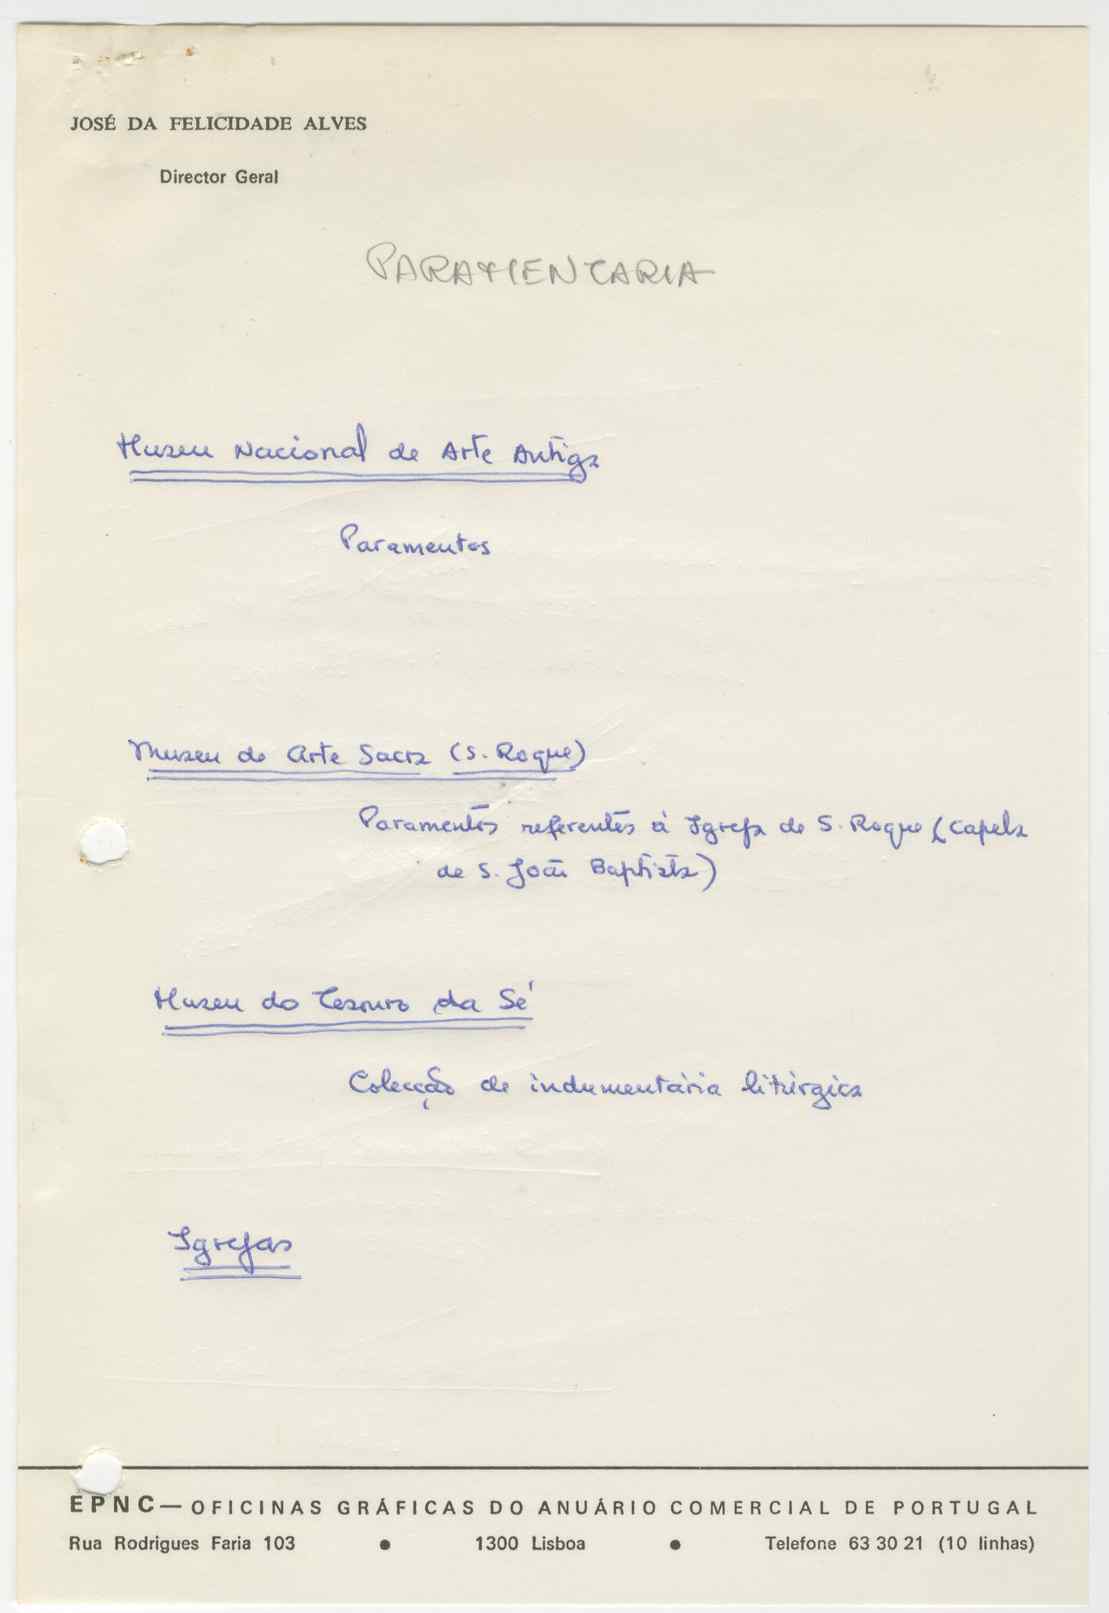 JOSÉ DA FELICIDADE ALVES
Director Geral
PARAMENTARIA
Museu Nacional de Arte Antiga
Paramentos
Museu de Arte Sacra (S. Roque)
Paramentos referentes à Igreja de S. Roque (Capela
de S. João Baptista)
Museu do Tesouro da Sé
Colecção de indumentária litúrgica
Igrejas
EPNC — OFICINAS GRÁFICAS DO ANUÁRIO COMERCIAL DE PORTUGAL
Rua Rodrigues Faria 103 • 1300 Lisboa • Telefone 63 30 21 (10 linhas)